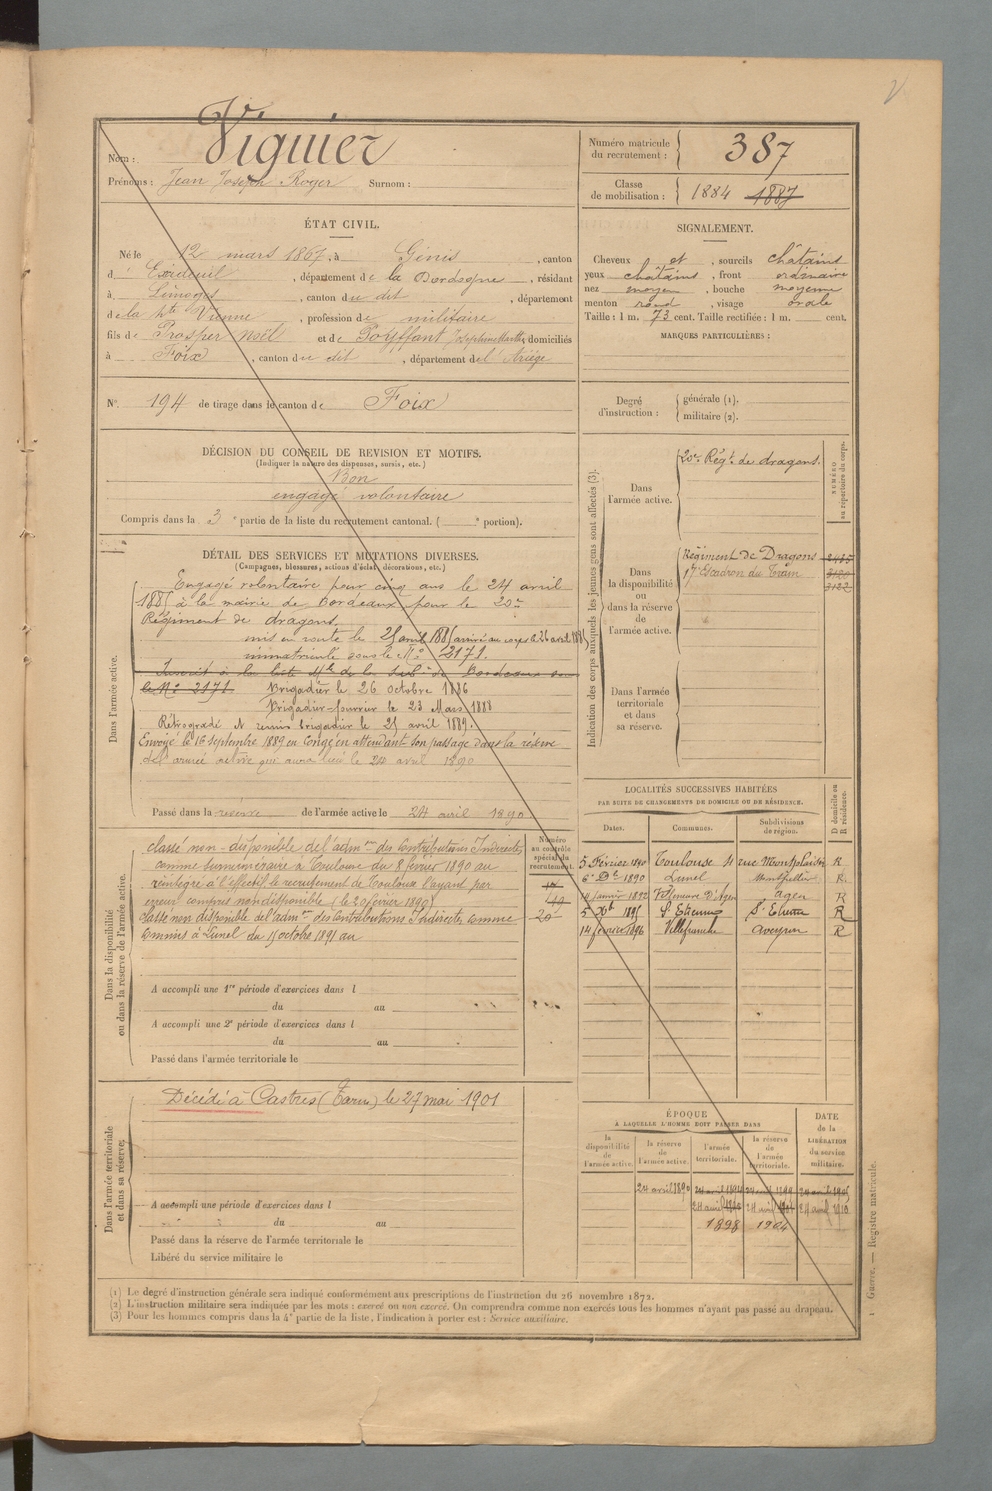 Nom : Viguier
Prénoms : Jean Joseph Roger Surnom :
Numéro matricule du recrutement : 387
Classe de mobilisation : 1884 1887
ÉTAT CIVIL.
Né le 12 mars 1867, à Génis, canton
d'Exideuil, département de la Dordogne, résidant
à Limoges, canton du dit, département
de la Hte Vienne, profession de militaire
fils de Prosper Noël et de Joséphine Marthe, domiciliés
à Foix, canton du dit, département de l'Ariège
N° 194 de tirage dans le canton de Foix
SIGNALEMENT.
Cheveux et, sourcils châtains
yeux châtains, front ordinaire
nez moyen, bouche moyenne
menton rond, visage ovale
Taille : 1 m. 73 cent. Taille rectifiée : 1 m. cent.
MARQUES PARTICULIÈRES :
Degré d'instruction : générale (1).
militaire (2).
DÉCISION DU CONSEIL DE REVISION ET MOTIFS.
(Indiquer la nature des dispenses, sursis, etc.)
Bon
engagé volontaire
Compris dans la 3e partie de la liste du recrutement cantonal. ( e portion).
DÉTAIL DES SERVICES ET MUTATIONS DIVERSES.
(Campagnes, blessures, actions d'éclat, décorations, etc.)
Dans l'armée active.
Engagé volontaire pour cinq ans le 24 avril
1885 à la mairie de Bordeaux pour le 20e
Régiment de dragons.
mis en route le 25 avril 1885 arrivé au corps le 26 avril 1885
immatriculé sous le No 2171.
Inscrit à la liste Mle de la Subon de Bordeaux sous
le No 2171. Brigadier le 26 octobre 1886
Brigadier-fourrier le 23 Mars 1888
Rétrogradé et remis brigadier le 25 avril 1889.
Envoyé le 16 septembre 1889 en congé en attendant son passage dans la réserve
de l'armée active qui aura lieu le 24 avril 1890
Passé dans la réserve de l'armée active le 24 avril 1890
Indication des corps auxquels les jeunes gens sont affectés (3).
NUMÉRO au répertoire du corps.
Dans l'armée active. 20e Régt de dragons.
Dans la disponibilité ou dans la réserve de l'armée active.
Régiment de Dragons
17e Escadron du Train
Dans l'armée territoriale et dans sa réserve.
LOCALITÉS SUCCESSIVES HABITÉES
PAR SUITE DE CHANGEMENTS DE DOMICILE OU DE RÉSIDENCE.
Dates. Communes. Subdivisions de région. D domicile ou R résidence.
5 Février 1890 Toulouse 11 rue Montplaisir R
6 Dc 1890 Lunel Montpellier R
14 janvier 1892 Agen R
5 Xbre 1895 St Etienne St Etienne R
14 février 1896 Villefranche Aveyron R
Dans la disponibilité ou dans la réserve de l'armée active.
Numéro au contrôle spécial du recrutement.
classé non-disponible de l'admon des Contributions Indirectes
comme surnuméraire à Toulouse du 8 février 1890 au
réintégré à l'effectif, le recrutement de Toulouse l'ayant par
erreur compris non disponible (le 20 février 1890)
classé non disponible de l'admon des Contributions Indirectes, comme 20
commis à Lunel du 15 octobre 1891 au
A accompli une 1re période d'exercices dans l
du au
A accompli une 2e période d'exercices dans l
du au
Passé dans l'armée territoriale le
Dans l'armée territoriale et dans sa réserve.
Décédé à Castres (Tarn) le 27 mai 1901
A accompli une période d'exercices dans l
du au
Passé dans la réserve de l'armée territoriale le
Libéré du service militaire le
ÉPOQUE
À LAQUELLE L'HOMME DOIT PASSER DANS
la disponibilité de l'armée active. la réserve de l'armée active. l'armée territoriale. la réserve de l'armée territoriale. DATE de la LIBÉRATION du service militaire.
24 avril 1890 24 avril 1894 24 avril 1899 24 avril 1905
24 avril 24 avril 24 avril 1910
1898 1904
(1) Le degré d'instruction générale sera indiqué conformément aux prescriptions de l'instruction du 26 novembre 1872.
(2) L'instruction militaire sera indiquée par les mots : exercé ou non exercé. On comprendra comme non exercés tous les hommes n'ayant pas passé au drapeau.
(3) Pour les hommes compris dans la 4e partie de la liste, l'indication à porter est : Service auxiliaire.
1 Guerre. — Registre matricule.